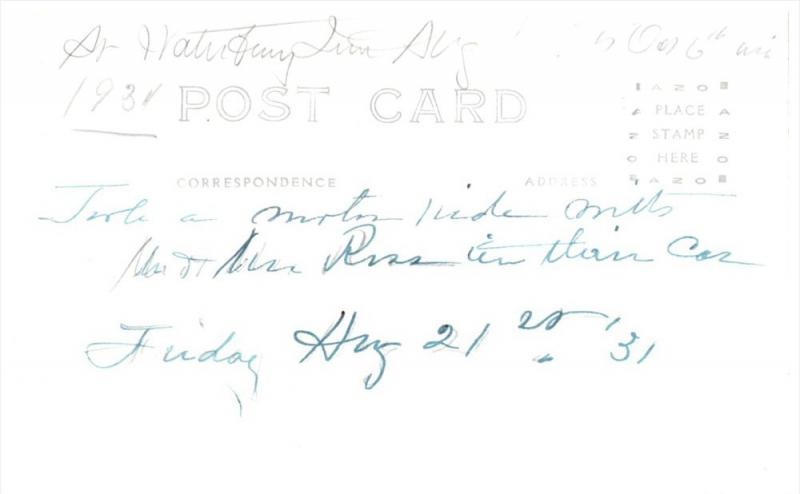 At Waterbury Aug
1931
POST CARD
AZO
PLACE
STAMP
HERE
AZO
CORRESPONDENCE
ADDRESS
Took a motor ride with
Mr & Mrs Ross in their Car
Friday Aug 21st '31